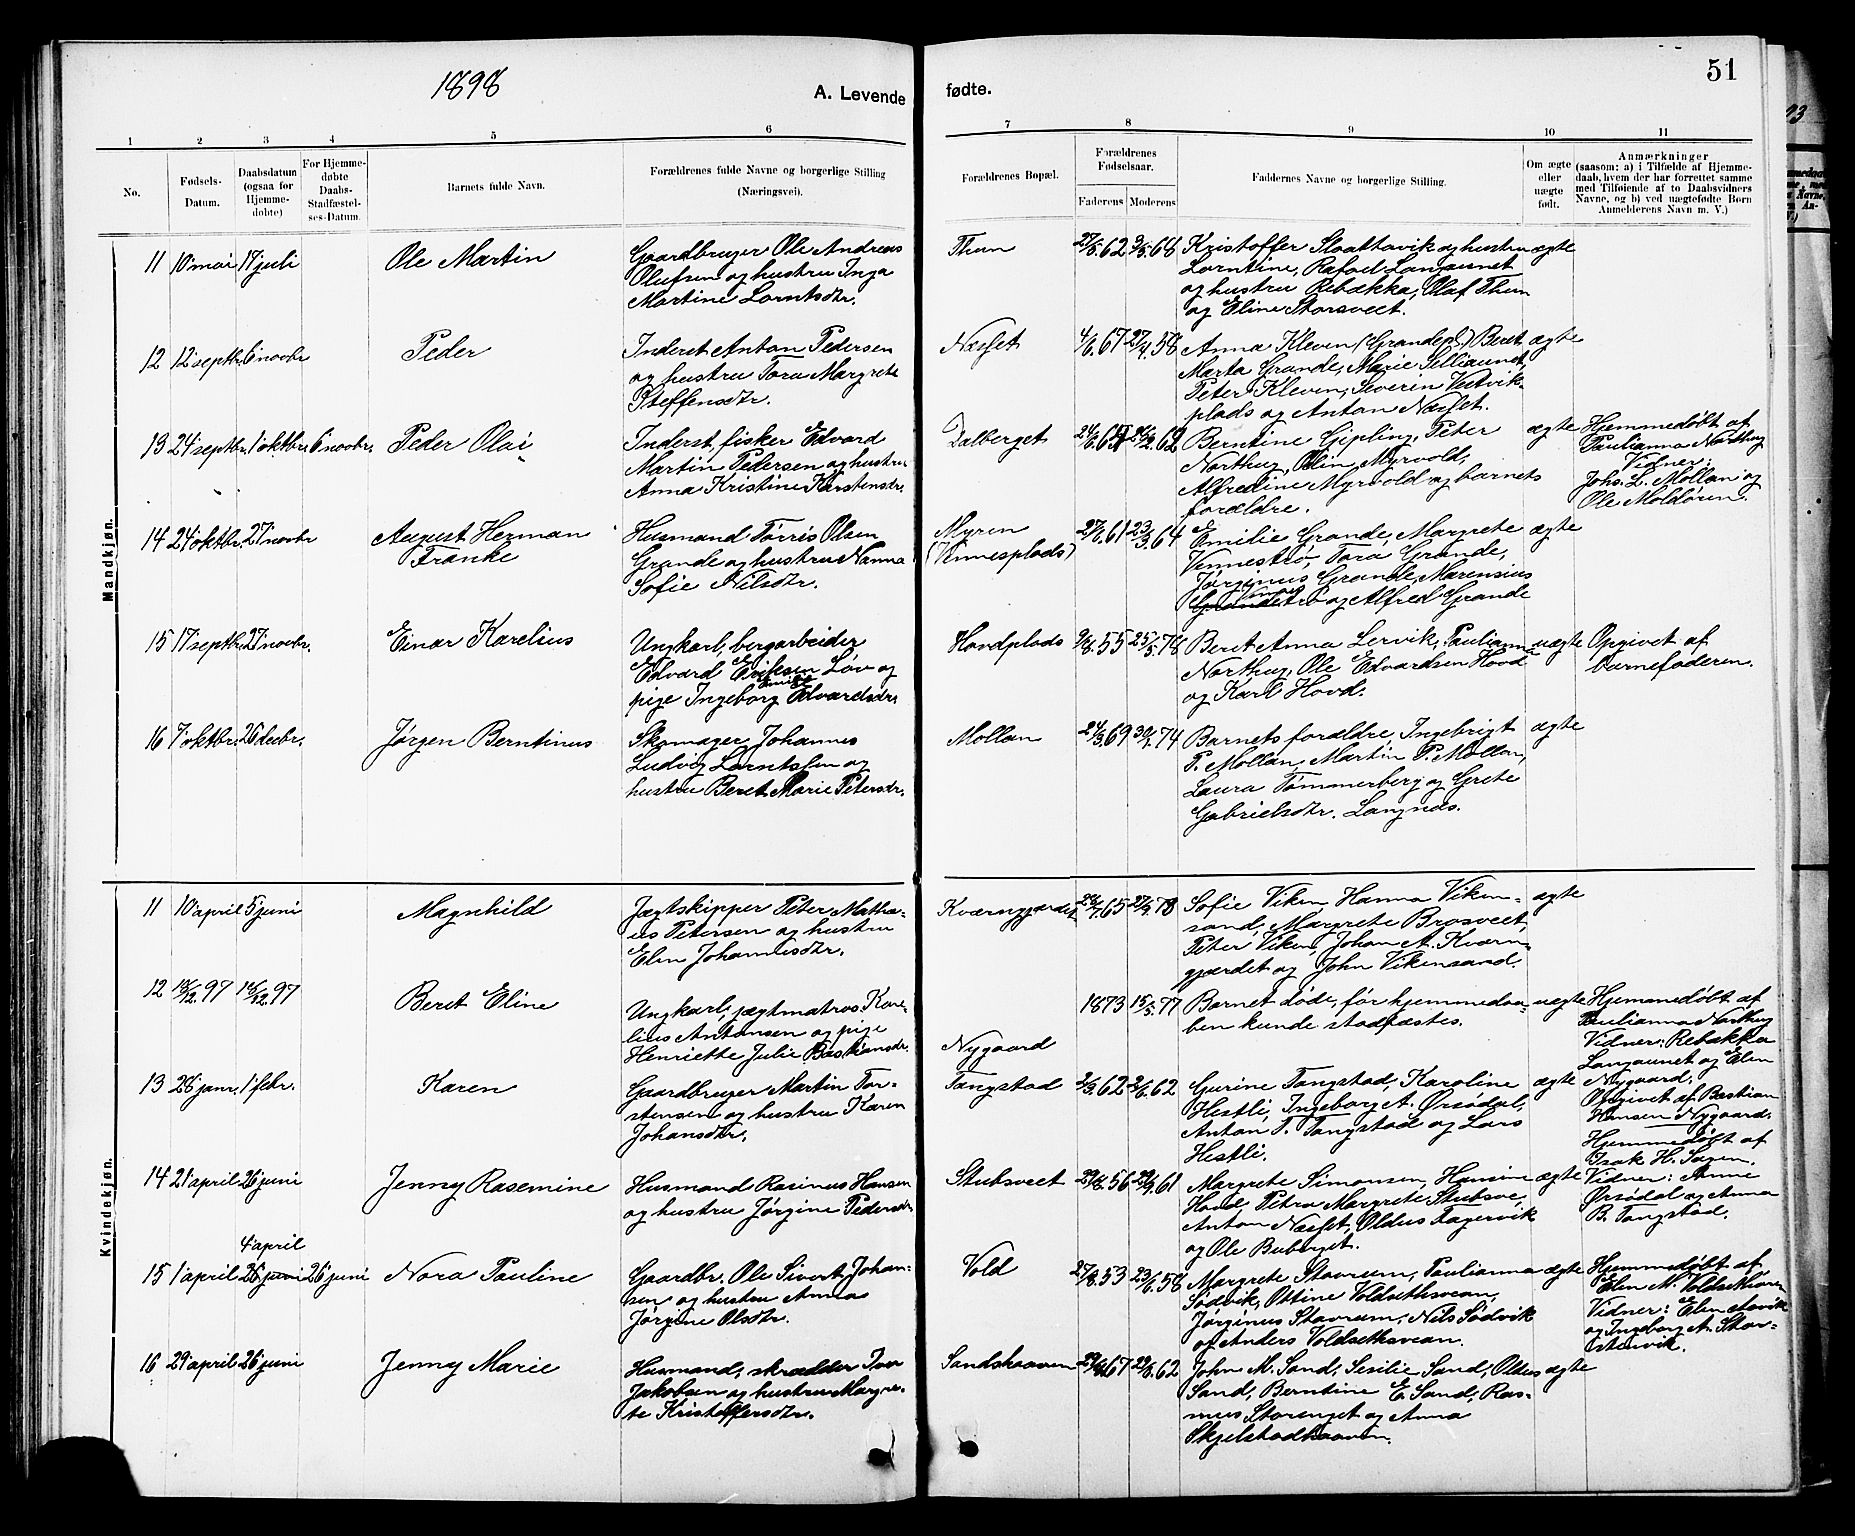 1898
A. Levende
fødte.
51
1 2 3 4 5 6 7 8 9 10 11
No.
Fødsels-
Datum.
Daabsdatum
(ogsaa for
Hjemme-
døbte)
For Hjemme-
døbte
Daabs-
Stadfæstel-
ses-Datum.
Barnets fulde Navn.
Forældrenes fulde Navne og borgerlige Stilling
(Næringsvei).
Forældrenes Bopæl.
Forældrenes
Fødselsaar.
Faderens Moderens
Faddernes Navne og borgerlige Stilling.
Om ægte
eller
uægte
født.
Anmærkninger
(saasom: a) i Tilfælde af Hjemme-
daab, hvem der har forrettet samme
med Tilføiende af to Daabsvidners
Navne, og b) ved uægtefødte Børn
Anmelderens Navn m. V.)
Mandkjøn.
11 10' mai 17' juli
Ole Martin
Gaardbruger Ole Andreas
Olufsen og hustru Inga
Martine Lorntsdtr.
Thun
27/5.62
Kristoffer Slaattavik og hustru
Lorntine, Rafael Langaunet
og hustru Rebækka, Olaf Thun
og Eline Storsveet.
ægte
12 12' septbr. 6' novbr
Peder
Inderst Anton Pedersen
og hustru Tora Margrete
Steffensdtr.
Næsset
4/6.67 27/4.58
Anna Kleven (Grandepl.) Beret
Marta Grande, Marie Selliaunet,
Peter Kleven, Severin Vestvik-
plads og Anton Næsset.
ægte
13 24' septbr. 1' oktbr. 6' novbr.
Peder Olai
Inderst, fisker Edvard
Martin Pedersen og hustru
Anna Kristine Karstensdr.
Dalberget
Berntine Gipling, Peter
Northug, Olin Myrvold,
Alfredine Myrvold og barnets
forældre.
ægte
Hjemmedøbt af
Paulianna Northug
Vidner:
Johs. L. Mollan og
Ole Moldøren.
14 24' oktbr. 27' novbr
August Herman
Franke
Husmand Tørris Olsen
Grande og hustru Nanna
Sofie Nilsdtr.
Myren
(Vennesplads)
27/6.61 23/3.64
Emilie Grande, Margrete
Vennestrø, Tora Grande,
Jørginus Grande, Marensius
Grandetrø og Alfred Grande
ægte
15 17' septbr. 27' novbr.
Einar Karelius
Ungkarl, bergarbeider
Edvard Eriksen Løv og
pige Ingeborg Edvardsdr.
Hovdplads
9/8.55 25/5.78
Beret Anna Lervik, Paulianna
Northug, Ole Edvardsen Hovd
og Karl Hovd.
uægte
Opgivet af
barnefaderen.
16 7' oktbr. 26' decbr.
Jørgen Berntinus
Skomager Johannes
Ludvig Lorntsen og
hustru Beret Marie Petersdr.
Mollan
24/3.69 30/1.74
Barnets forældre, Ingebrigt
P. Mollan, Martin P. Mollan,
Laura Tømmerberg og Grete
Gabrielsdtr. Langnes.
ægte
Kvindekjøn.
11 10' april 5' juni
Magnhild
Jægtskipper Peter Mathæ-
us Petersen og hustru
Elen Johannesdtr.
Kværngjærdet
Sofie Viken, Hanna Viken-
sand, Margrete Brosveet,
Peter Viken, Johan A. Kværn-
gjærdet og John Vikensand.
ægte
12 18/12.97 18/12.97
Beret Eline
Ungkarl, jægtmatros Kare-
lius Antonsen og pige
Henriette Julie Bastiansdr.
Nygaard
1873 15/5.77
Barnet døde, før hjemmedaa-
ben kunde stadfæstes.
uægte
Hjemmedøbt af
Paulianna Northug
Vidner: Rebækka
Langaunet og Elen
Nygaard.
Opgivet af Bastian
Hansen Nygaard.
13 28' janr. 1' febr.
Karen
Gaardbruger Martin Tor-
stensen og hustru Karen
Johansdtr.
Tangstad
2/3.62 2/6.62
Gurine Tangstad, Karoline
Hestli, Ingeborg A. Ørsødal,
Anton T. Tangstad og Lars
Hestli.
ægte
Hjemmedøbt af
Isak H. Sagen.
Vidner: Anne
Ørsødal og Anna
B. Tangstad.
14 21' april 26' juni
Jenny Rasemine
Husmand Rasinus Hansen
og hustru Jørgine Pedersdr.
Stubsveet
Margrete Simonsen, Hansine
Hovd, Petra Margrete Stubsve,
Anton Næsset, Oldus Fagervik
og Ole Buberget.
ægte
4' april
15 1' april 26' juni 26' juni
Nora Pauline
Gaardbr. Ole Sivert Johan-
sen og hustru Anna
Jørgine Olsdtr.
Vold
27/8.53 23/6.58
Margrete Stavrum, Paulianna
Sødvik, Ottine Voldsethsvean,
Jørginus Stavrum, Nils Sødvik
og Anders Voldsethsvean.
ægte
Hjemmedøbt af
Elen M. Voldsethsveen
Vidner: Elen
og Ingeborg A. Stor-
16 29' april 26' juni
Jenny Marie
Husmand, skrædder Iver
Jakobsen og hustru Margre-
te Kristoffersdtr.
Sandshaaven
John M. Sand, Sesilie Sand, Oldus
Sand, Berntine E. Sand, Ras-
mus Storenget og Anna
Skjelstadhaaven.
ægte